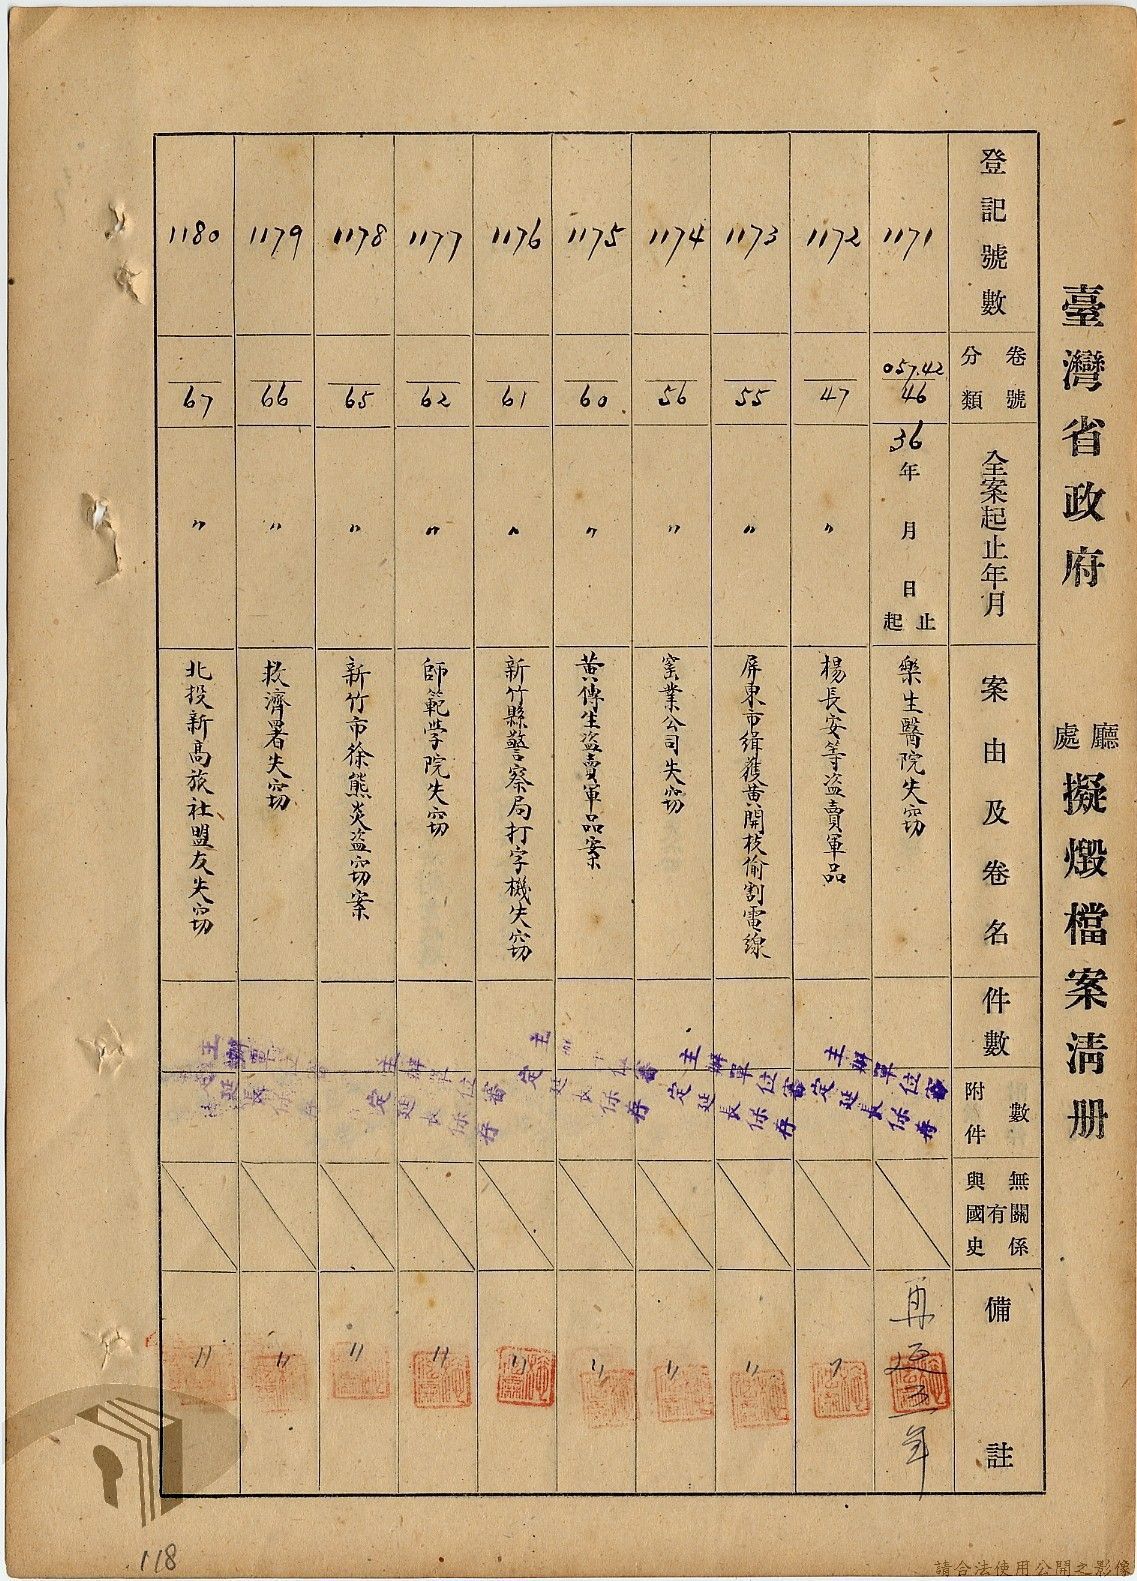 臺灣省政府 廳處 擬燬檔案淸册
登記號數
卷號
分類
全案起止年月
案由及卷名
件數
附件數
與國史有無關係
備註
1171
057.42
46
36年 月 日起止
樂生醫院失窃
再延五年
1172
47
〃
楊長安等盜賣軍品
〃
1173
55
〃
屏東市緝獲黄開枝偷割電線
〃
1174
56
〃
窯業公司失窃
〃
1175
60
〃
黄傳生盜賣軍品案
〃
1176
61
〃
新竹縣警察局打字機失窃
〃
1177
62
〃
師範学院失窃
〃
1178
65
〃
新竹市徐熊炎盜窃案
〃
1179
66
〃
救濟署失窃
〃
1180
67
〃
北投新高旅社盟友失窃
〃
主辦單位審定延長保存
主辦單位審定延長保存
主辦單位審定延長保存
主辦單位審定延長保存
主辦單位
延長保存
118
請合法使用公開之影像